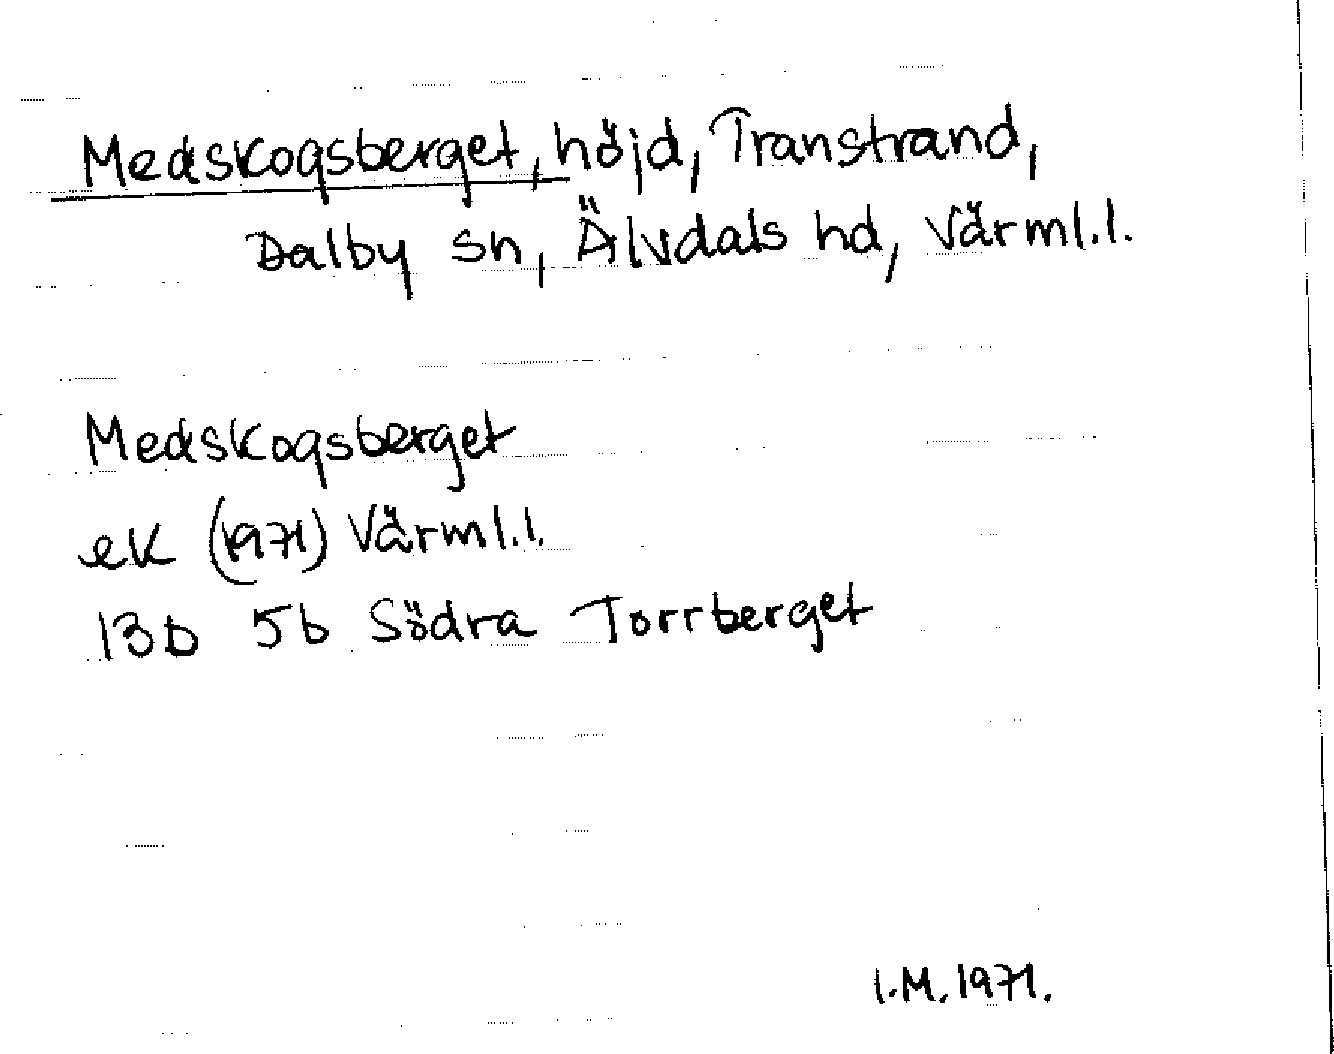 Medskogsberget, höjd, Transtrand,
Dalby sn, Älvdals hd, Värml.l.
Medskogsberget
ek (1971) Värml.l.
13D 5b Södra Torrberget
I.M. 1971.